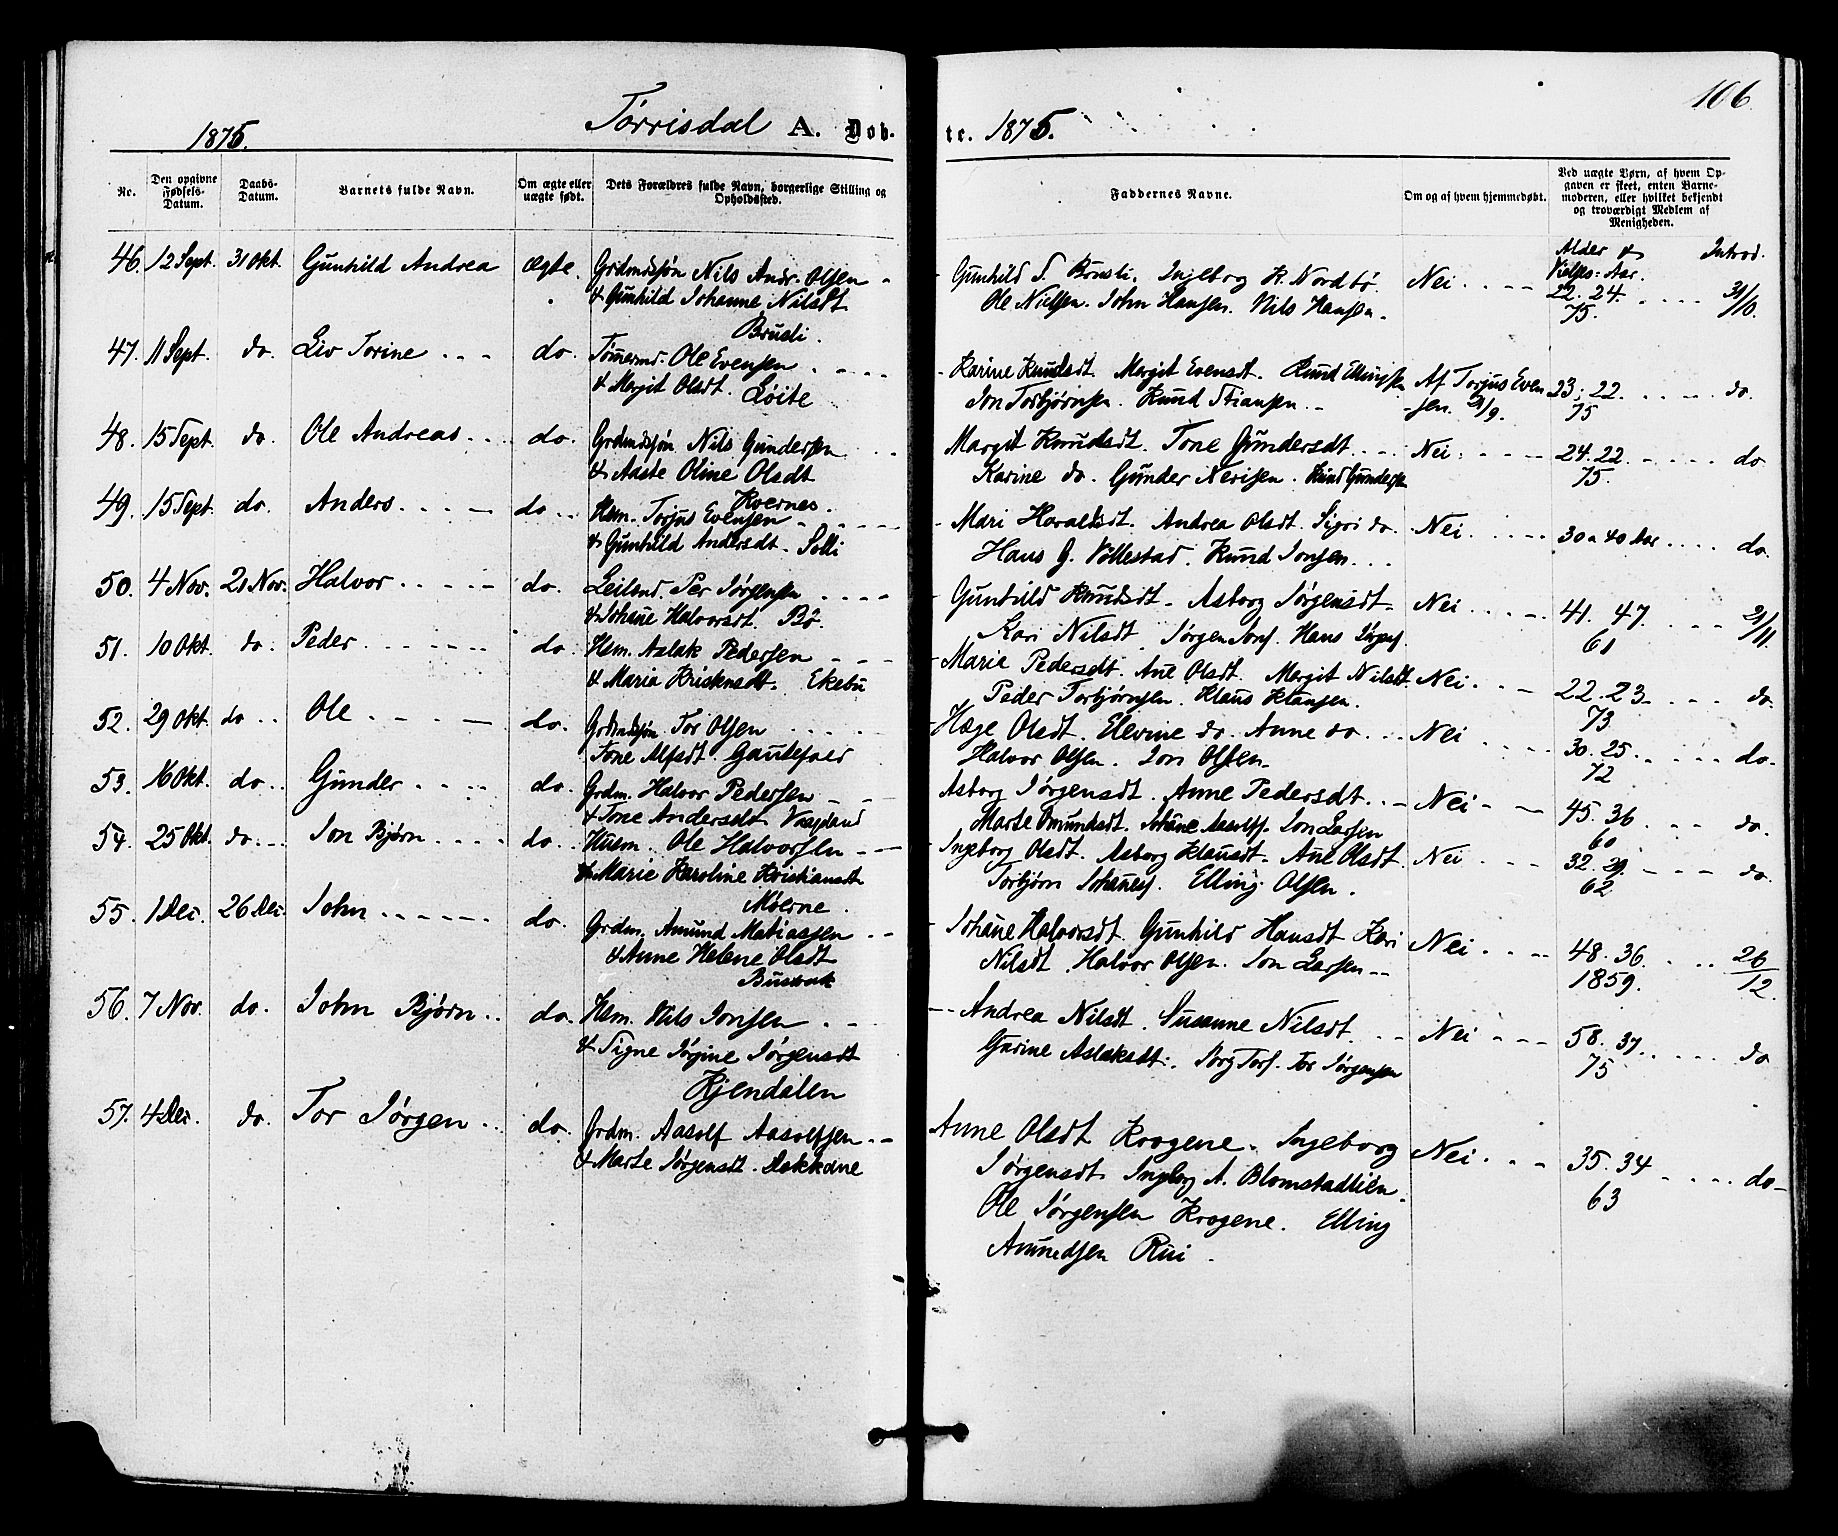 106
1875. Tørrisdal A. Døb-
te. 1875.
No. Den opgivne Fødsels-Datum. Daabs-Datum. Barnets fulde Navn. Om ægte eller uægte født. Dets Forældres fulde Navn, borgerlige Stilling og Opholdssted.
Faddernes Navne. Om og af hvem hjemmedøbt. Ved uægte Børn, af hvem Opgaven er skeet, enten Barnemoderen, eller hvilket bekjendt og troværdigt Medlem af Menigheden.
Alder & Vielses-Aar. Introd.
46. 12 Sept. 31 Okt. Gunhild Andrea ægte. Grdmdssøn Nils Andr. Olsen
& Gunhild Johanne Nilsdt
Brusli.
Gunhild T. Brusli. Ingeborg K. Nordbø. Nei 22. 24. 31/10
Ole Nielsen. John Hansen. Nils Hansen. 75.
47. 11 Sept. do. Liv Torine do. Tømermd. Ole Evensen
& Margit Olsdt. Løite
Karine Knudsdt. Margit Evensdt. Knud Ellingsen Af Torjus Even- 23. 22. do.
Jon Torbjørnsen. Knud Stiansen. sen. 21/9. 75
48. 15 Sept. do. Ole Andreas do. Grdmdssøn Nils Gundersen
& Aaste Oline Olsdt
Kvernes.
Margit Knudsdt. Tone Gundersdt Nei. 24. 22. do
Karine do. Gunder Nerisen. Knud Gundersen 75.
49. 15 Sept. do. Anders do. Hsm. Torjus Evensen
& Gunhild Andersdt. Solli
Mari Haraldsdt. Andrea Olsdt. Sigri do. Nei. 30 a 40 Aar do.
Hans G. Vollestad. Knud Jonsen.
50. 4 Nov. 21 Nov. Halvor do. Leilend. Per Jørgensen
& Johane Halvorsdt. Bø.
Gunhild Knudsdt. Asborg Jørgensdt. Nei 41. 47. 21/11
Kari Nilsdt. Jørgen Jons. Hans Jørgens. 61
51. 10 Okt. do. Peder do. Hsm. Aslak Pedersen
& Maria Kristensdt. Ekebu
Marie Pedersdt. Ane Olsdt. Margit Nilsdt. Nei. 22. 23. do.
Peder Torbjørnsen. Klaus Klausen. 73
52. 29 Okt. do. Ole do. Grdmdssøn Tor Olsen
Tone Alfsdt. Gautefald
Hæge Olsdt. Elevine do. Anne do. Nei 30. 25. do.
Halvor Olsen. Jon Olsen. 72
53. 16 Okt. do. Gunder do. Grdm. Halvor Pedersen
& Tone Andersdt Vragland
Asborg Jørgensdt. Anne Pedersdt. Nei 45. 36 do.
Marte Omundsdt. Johane Aasolfs. Jon Larsen 60
54. 25 Okt. do. Jon Bjørn do. Husm. Ole Halvorsen
& Marie Karoline Kristiansdt
Moerne.
Ingeborg Olsdt. Asborg Klausdt. Ane Olsdt. Nei 32. 29. do.
Torbjørn Johanes. Elling Olsen. 62
55. 1 Dec. 26 Dec. John do. Grdm. Amund Matiassen
& Anne Helene Olsdt
Johane Halvorsdt. Gunhild Hansdt Kari Nei 48. 36. 26/12.
Nilsdt. Halvor Olsen. Jon Larsen 1859.
56. 7 Nov. do. John Bjørn do. Hsm. Nils Jonsen
& Signe Jørgine Jørgensdt
Kjendalen
Andrea Nilsdt. Susanne Nilsdt. Nei 58. 37. do
Gurine Aslaksdt. Jørg Tors. Tor Jørgensen 75
57. 4 Dec. do. Tor Jørgen do. Grdm. Aasolf Aasolfsen
& Marte Jørgensdt. Dokkane
Anne Olsdt Krogene. Ingeborg Nei. 35. 34 do
Jørgensdt. Ingborg A. Blomstadlien. 63
Ole Jørgensen Krogene. Elling
Amundsen Rui.